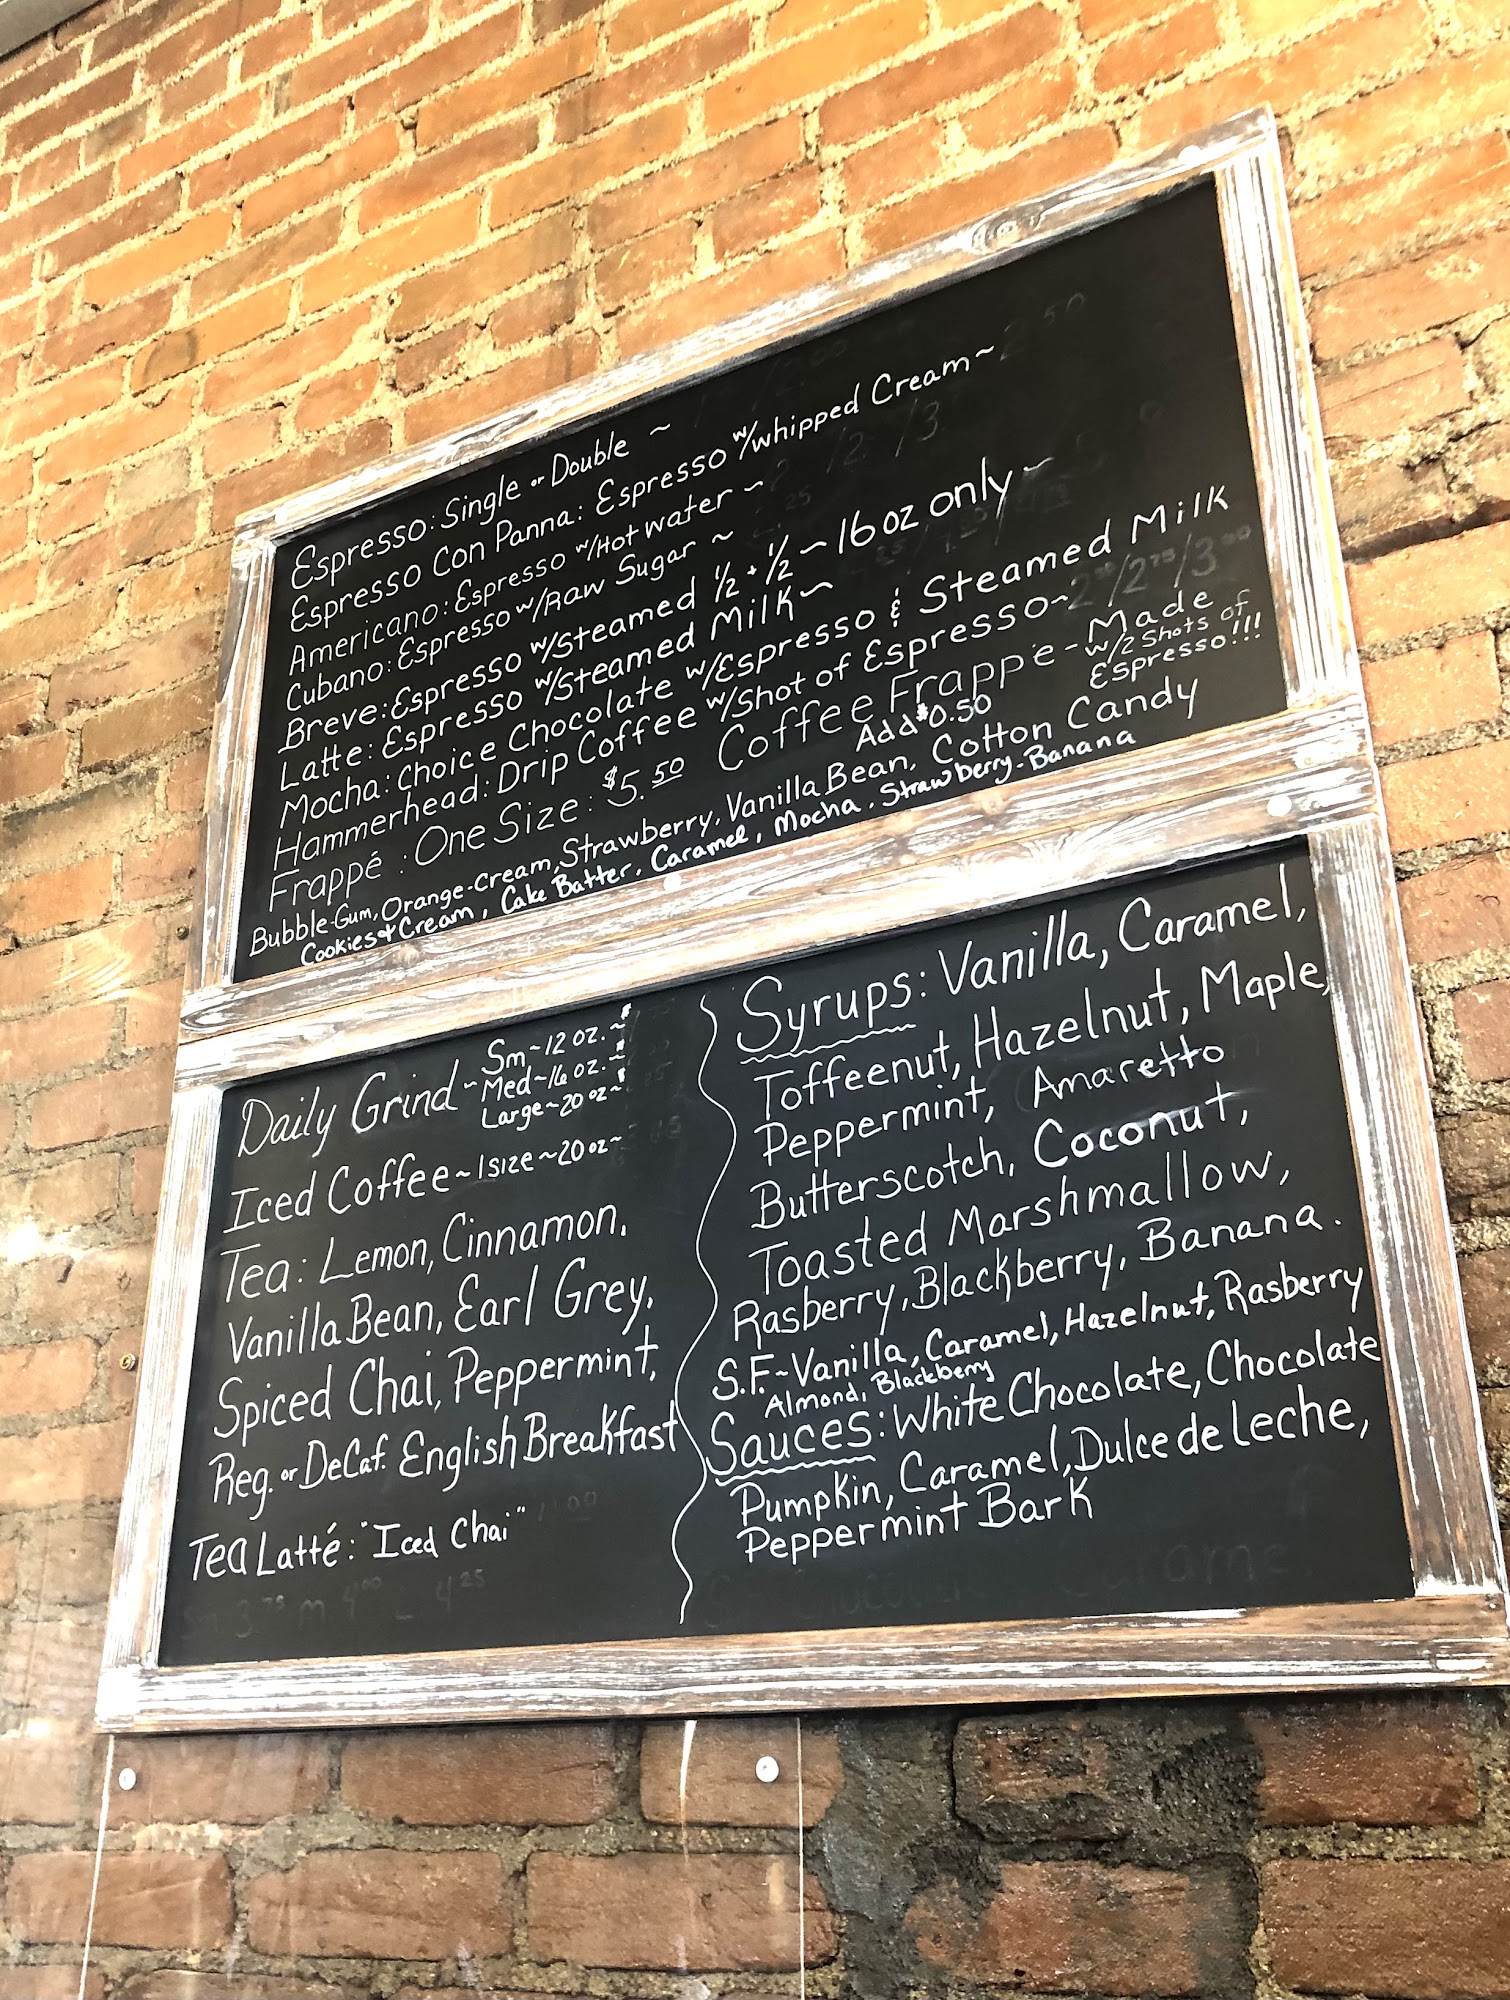 Espresso: Single or Double ~
Espresso Con Panna: Espresso w/whipped Cream ~
Americano: Espresso w/Hot water ~
Cubano: Espresso w/Raw Sugar ~
Breve: Espresso w/steamed 1/2 + 1/2 ~ 16oz only ~
Latte: Espresso w/steamed Milk ~
Mocha: Choice Chocolate w/Espresso & Steamed Milk
Hammerhead: Drip Coffee w/Shot of Espresso ~ 2/2.75/3.00
Frappé: One Size: $5.50 Coffee Frappe - Made
w/2 Shots of
Espresso!!!
Add $0.50
Bubble-Gum, Orange-Cream, Strawberry, Vanilla Bean, Cotton Candy
Cookies & Cream, Cake Batter, Caramel, Mocha, Strawberry-Banana
Daily Grind ~ Sm ~ 12 oz. ~ $
Med ~ 16 oz. ~ $
Large ~ 20 oz ~ $
Iced Coffee ~ 1 size ~ 20 oz ~
Tea: Lemon, Cinnamon,
Vanilla Bean, Earl Grey,
Spiced Chai, Peppermint,
Reg. or DeCaf. English Breakfast
Tea Latté: "Iced Chai"
3.75 m 4.00 L 4.25
Syrups: Vanilla, Caramel,
Toffeenut, Hazelnut, Maple,
Peppermint, Amaretto
Butterscotch, Coconut,
Toasted Marshmallow,
Rasberry, Blackberry, Banana.
S.F. ~ Vanilla, Caramel, Hazelnut, Rasberry
Almond, Blackberry
Sauces: White Chocolate, Chocolate
Pumpkin, Caramel, Dulce de Leche,
Peppermint Bark